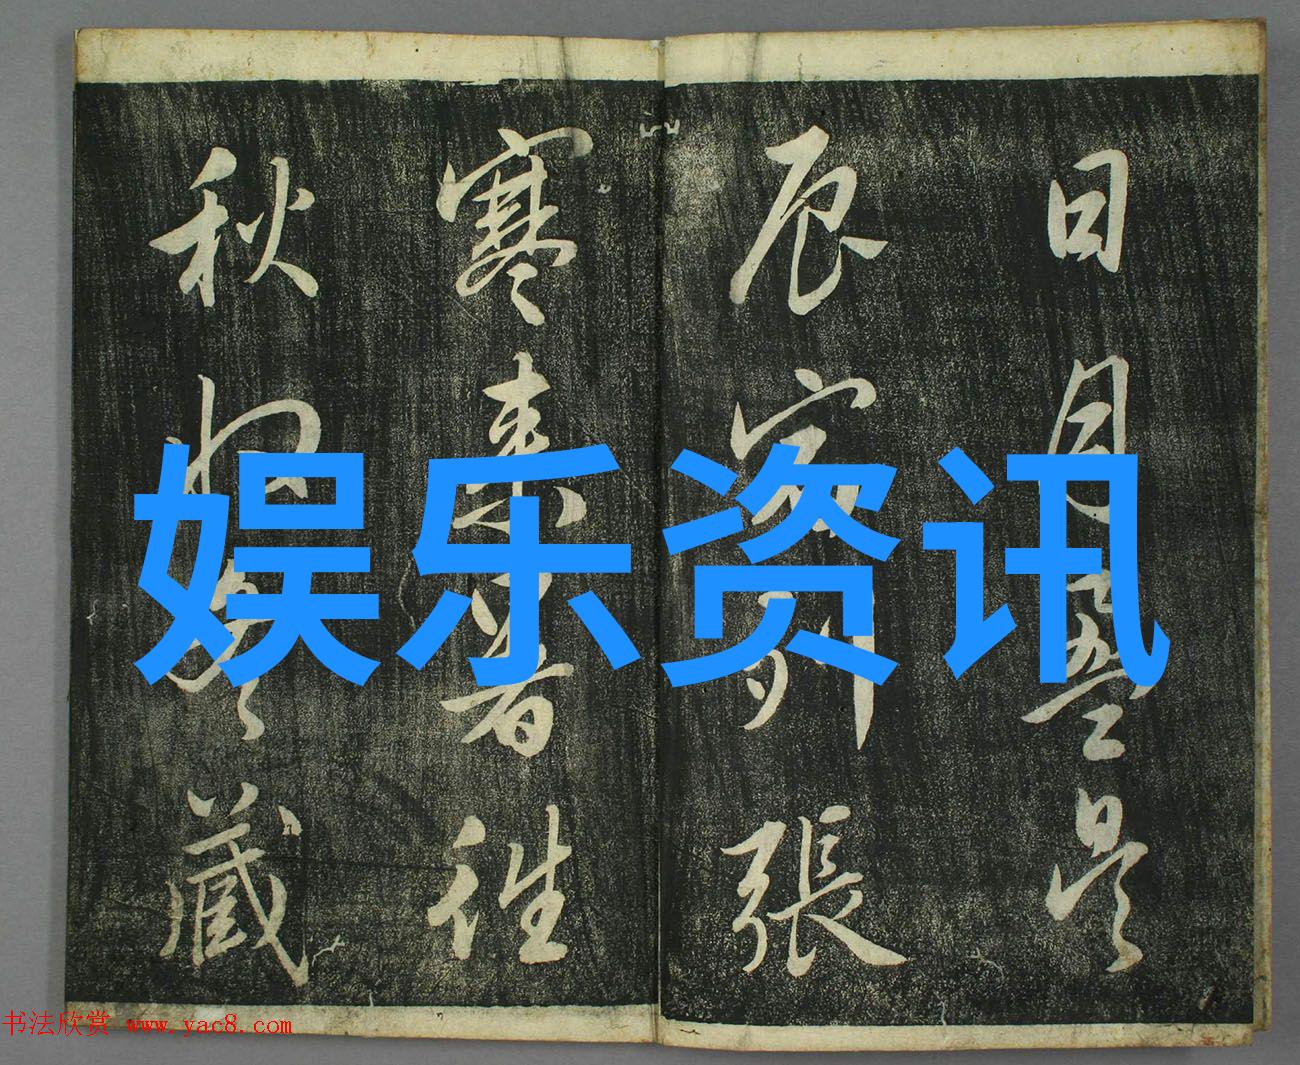 日月盈昃
辰宿列張
寒来暑往
秋收冬藏
娱乐资讯
书法欣赏 www.yac8.com